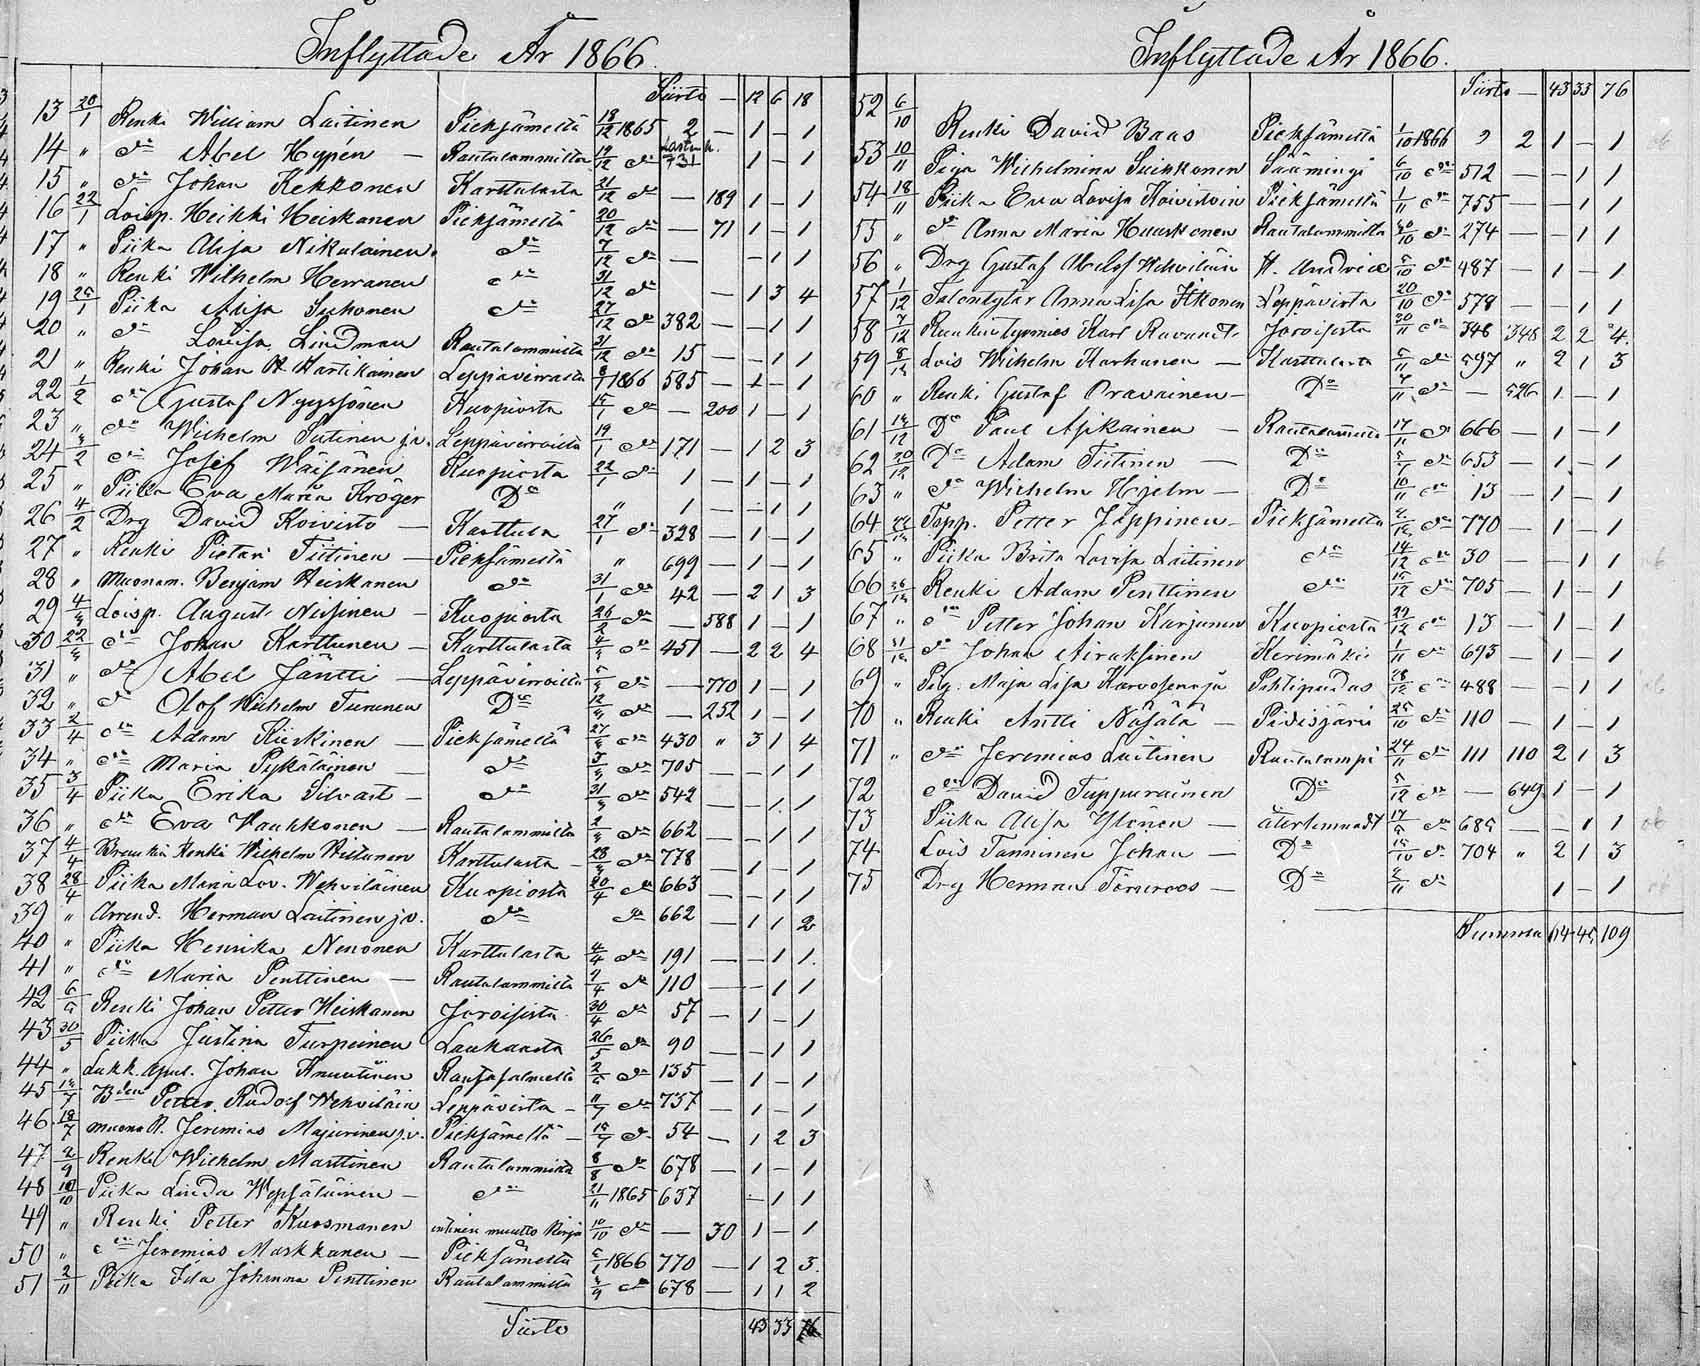 Inflyttade År 1866.
Siirto — 12 6 18
13 20/1 Renki William Laitinen Pieksämeltä 18/12 1865 2 — 1 — 1
14 " do Abel Hypén — Rautalammilta 19/12 do 731 1 — 1
15 " do Johan Kekkonen Karttulasta 21/12 do — 189 1 — 1
16 22/1 Loisp. Heikki Heiskanen Pieksämeltä 20/12 do — 71 1 — 1
17 " Piika Alisa Nikulainen do 7/12 do — — 1 1
18 " Renki Wilhelm Herranen do 31/12 do — 1 3 4
19 25/1 Piika Alisa Suhonen do 27/12 do 382 — — 1 1
20 " do Lovisa Lindman Rautalammilta 31/12 do 15 — — 1 1
21 " Renki Johan H. Hartikainen Leppävirralta 8/1 1866 585 — 1 — 1
22 1/2 do Gustaf Nyyssönen Kuopiosta 15/1 do — 200 1 — 1
23 " do Wilhelm Tiitinen j.v. Leppävirralta 19/1 do 171 — 1 2 3
24 2/2 do Josef Wäisänen Kuopiosta 22/1 do 1 — 1 — 1
25 " Piika Eva Maria Kröger Do " 1 — — 1 1
26 4/2 Drg David Koivisto — Karttula 27/1 do 328 — 1 — 1
27 " Renki Pietari Tiitinen — Pieksämeltä " 699 — 1 — 1
28 " Muonam. Benjam Heiskanen do 31/1 do 42 — 2 1 3
29 4/3 Loisp. August Nusinen — Kuopiosta 26/2 do — 588 1 — 1
30 22/3 do Johan Karttunen — Karttulasta 4/3 do 451 — 2 2 4
31 " do Abel Jäntti — Leppävirralta 5/3 do — 770 1 — 1
32 " do Olof Wilhelm Turunen Do 12/3 do — 252 1 — 1
33 2/4 do Adam Kiiskinen — Pieksämeltä 27/3 do 430 " 3 1 4
34 " do Maria Pykäläinen — do 3/3 do 705 — — 1 1
35 3/4 Piika Erika Silvast — do 31/3 do 542 — — 1 1
36 " do Eva Haukkonen — Rautalammilta 2/3 do 662 — — 1 1
37 4/4 Renki Wilhelm Karttulasta — 28/3 do 778 — 1 — 1
38 28/4 Piika Maria Lov. Wehviläinen Kuopiosta 20/4 do 663 — — 1 1
39 " Arrend. Herman Laitinen j.v. do do 662 — 1 1 2
40 " Piika Henrika Nenonen Karttulasta 4/4 do 191 — — 1 1
41 " do Maria Penttinen — Rautalammilta 7/4 do 110 — — 1 1
42 6/5 Renki Johan Petter Heiskanen Joroisista 30/4 do 57 — 1 — 1
43 30/5 Piika Justina Turpeinen Laukaasta 26/5 do 90 — — 1 1
44 " Lukk. apul. Johan Knuutinen Rantasalmelta 2/6 do 135 — 1 — 1
45 12/7 Bden Petter Rudolf Wehviläin Leppävirta — 11/7 do 737 — 1 — 1
46 18/7 Muona R. Jeremias Majurinen j.v. Pieksämeltä — 15/7 do 54 — 1 2 3
47 2/9 Renki Wilhelm Marttinen Rautalammilta 8/8 do 678 — 1 — 1
48 10/10 Piika Linda Wepsäläinen — do 21/11 1865 637 — 1 1
49 " Renki Petter Kuosmanen entinen muutto kirja 10/10 do — 30 1 — 1
50 " do Jeremias Markkanen — Pieksämeltä 1866 770 — 1 2 3
51 2/11 Piika Ida Johanna Penttinen Rautalammilta 4/9 do 678 — 1 1 2
Siirto 43 33 76
Inflyttade År 1866.
Siirto — 43 33 76
52 6/10 Renki David Baas Pieksämeltä 1/10 1866 2 1 — 1
53 10/11 Piga Wilhelmina Suikkonen Säämingi 6/10 do 512 — — 1 1
54 18/11 Piika Eva Lovisa Koivistoin Pieksämeltä 1/11 do 755 — — 1 1
55 " do Anna Maria Kuuskonen Rautalammilta 30/10 do 274 — — 1 1
56 " Drg Gustaf Adolf Wehviläin St. Andreæ 5/10 do 487 — 1 — 1
57 1/12 Talontytär Anna Lisa Itkonen Leppävirta 20/10 do 578 — — 1 1
58 7/12 Ruukin työmies Karl Ravandt Joroisista 30/11 do 348 348 2 2 4
59 8/12 Lois Wilhelm Karhunen — Karttulasta 5/11 do 597 " 2 1 3
60 " Renki Gustaf Oravainen — Do 4/11 do — 526 1 — 1
61 14/12 Do Paul Asikainen — Rautalammilta 17/11 do 666 — 1 — 1
62 20/12 Do Adam Tiitinen — Do 5/1 do 653 — 1 — 1
63 " do Wilhelm Hjelm — Do 10/11 do 13 — 1 — 1
64 22/12 Topp. Petter Jäppinen — Pieksämeltä 2/12 do 770 — 1 — 1
65 " Piika Brita Lovisa Laitinen do 14/12 do 30 — — 1 1
66 26/12 Renki Adam Penttinen do 15/12 do 705 — 1 — 1
67 " do Petter Johan Karjunen Kuopiosta 27/12 do 13 — 1 — 1
68 31/12 do Johan Airaksinen Kerimäki 1/11 do 693 — 1 — 1
69 " Pig. Maja Lisa Karvosenoja Pihtipudas 28/12 do 488 — — 1 1
70 " Renki Antti Näsälä — Pidisjärvi 25/10 do 110 — 1 — 1
71 " do Jeremias Laitinen Rautalampi 24/11 do 111 110 2 1 3
72 do David Tuppurainen Do 5/12 do — 649 1 — 1
73 Piika Alisa Ylönen — återlemnadt 17/9 do 685 — — 1 1
74 Lois Tanninen Johan — Do 15/10 do 704 " 2 1 3
75 Drg Herman Törnroos — Do 2/11 do 1 — 1
Summa 64 45 109